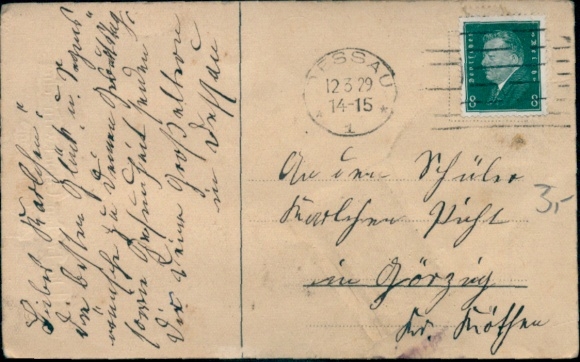 Liebes Karlchen!
Die besten Glück u. Segens
wünsche zu deinem Geburtstag
sowie Gesundheit senden Dir
Deine Großeltern
in Dessau
DESSAU
12.3.29
14-15
1
DEUTSCHES REICH
8 8
An den Schüler
Karlchen Picht
in Görzig
Kr. Köthen
3,-